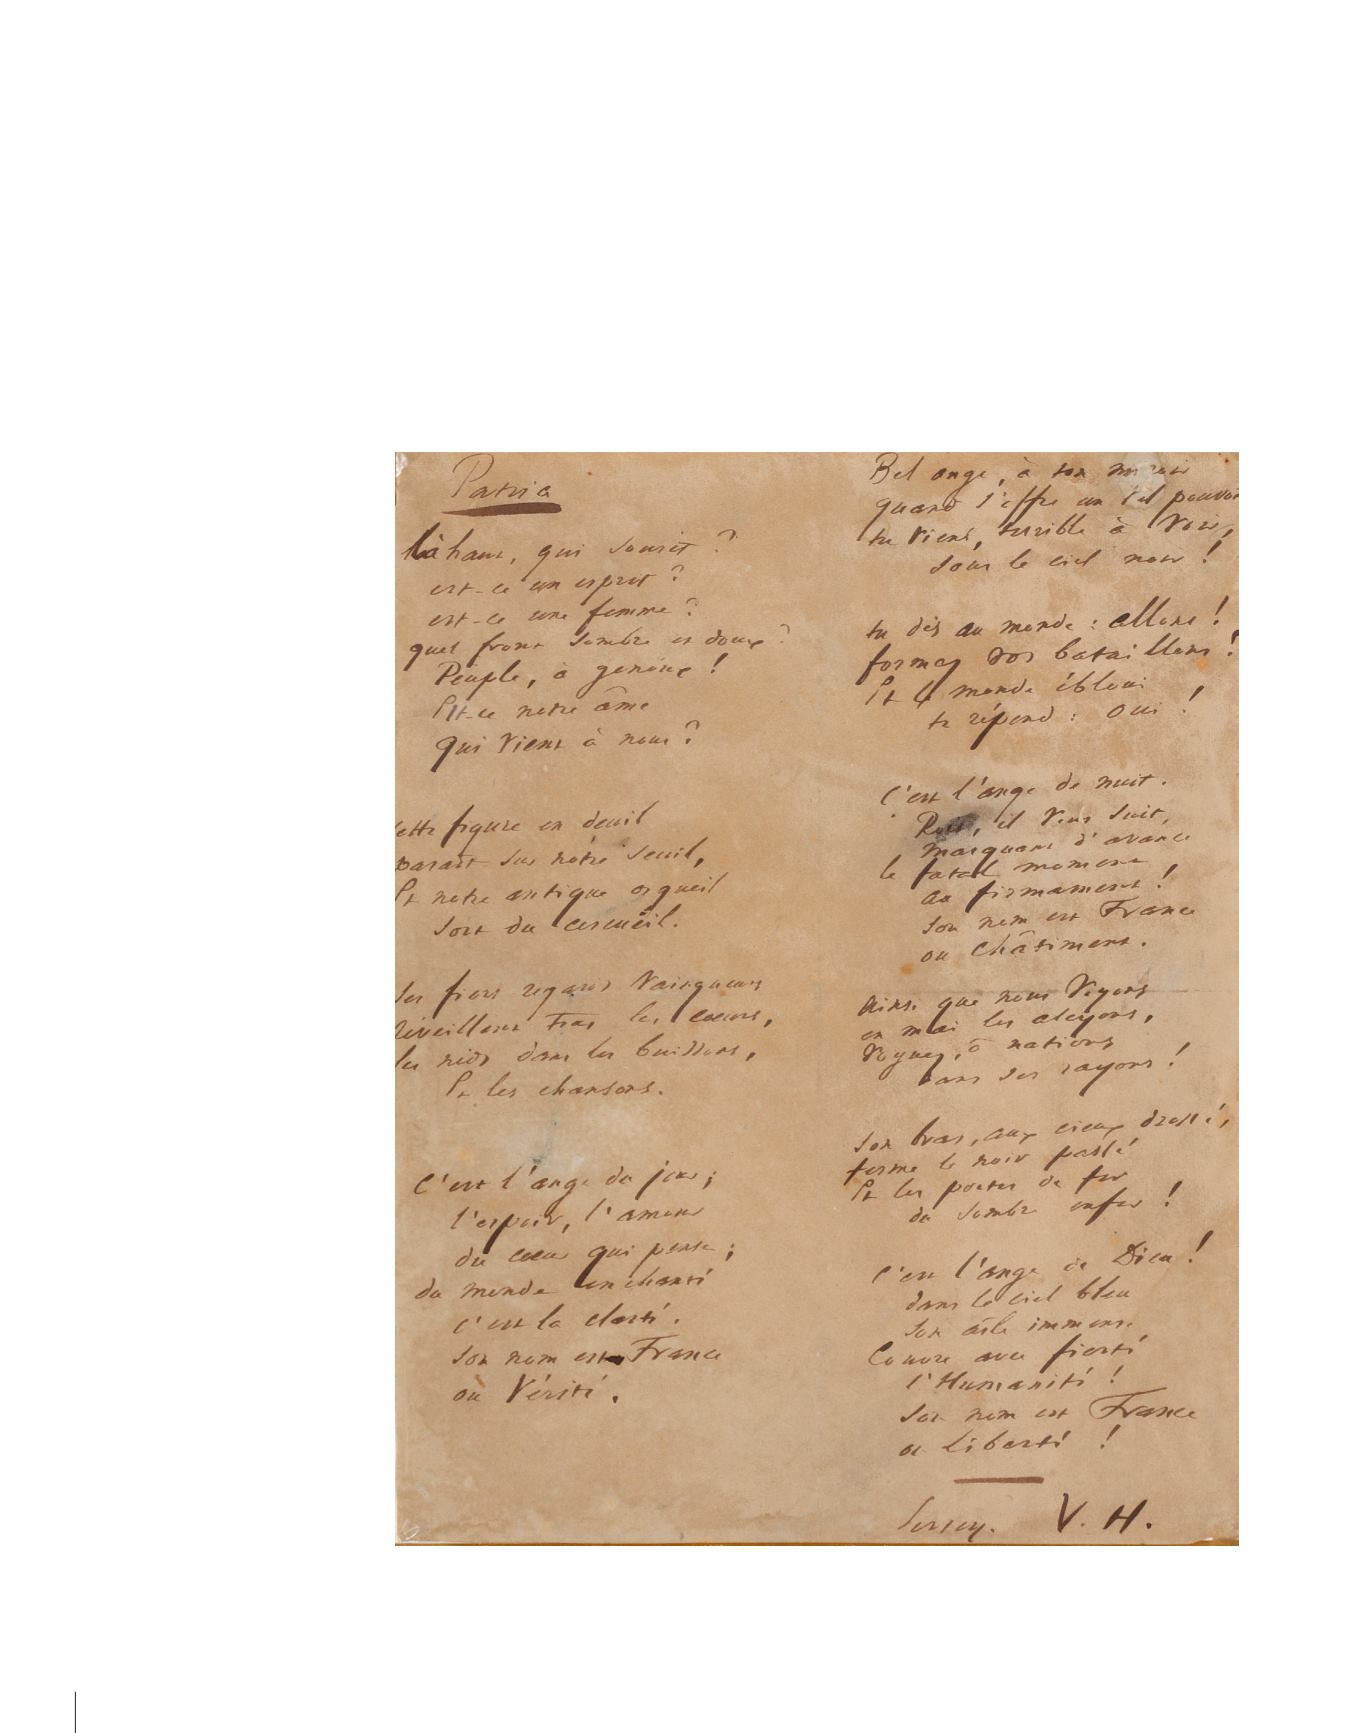 Patria
Là haut, qui sourit ?
est-ce un esprit ?
est-ce une femme ?
quel front sombre et doux ?
Peuple, à genoux !
Est-ce notre âme
qui vient à nous ?
cette figure en deuil
paraît sur notre seuil,
Et notre antique orgueil
sort du cercueil.
Ses fiers regards vainqueurs
réveillent tous les coeurs,
les nids dans les buissons,
Et les chansons.
C'est l'ange du jour ;
l'espoir, l'amour
du coeur qui pense ;
du monde enchanté
c'est la clarté.
Son nom est France
ou Vérité.
Bel ange, à ton miroir
quand s'offre un vil pouvoir
tu viens, terrible à voir,
sous le ciel noir !
tu dis au monde : allons !
formez vos bataillons !
Et le monde ébloui
te répond : oui !
C'est l'ange de nuit.
Rois, il vous suit,
marquant d'avance
le fatal moment
au firmament !
Son nom est France
ou Châtiment.
Ainsi que nous voyons
en mai les alcyons,
Voguez, ô nations
dans ses rayons !
Son bras, aux cieux dressé,
ferme le noir passé
Et les portes de fer
du sombre enfer !
C'est l'ange de Dieu !
dans le ciel bleu
Son aîle immense
Couvre avec fierté
l'Humanité !
Son nom est France
ou Liberté !
Jersey. V. H.